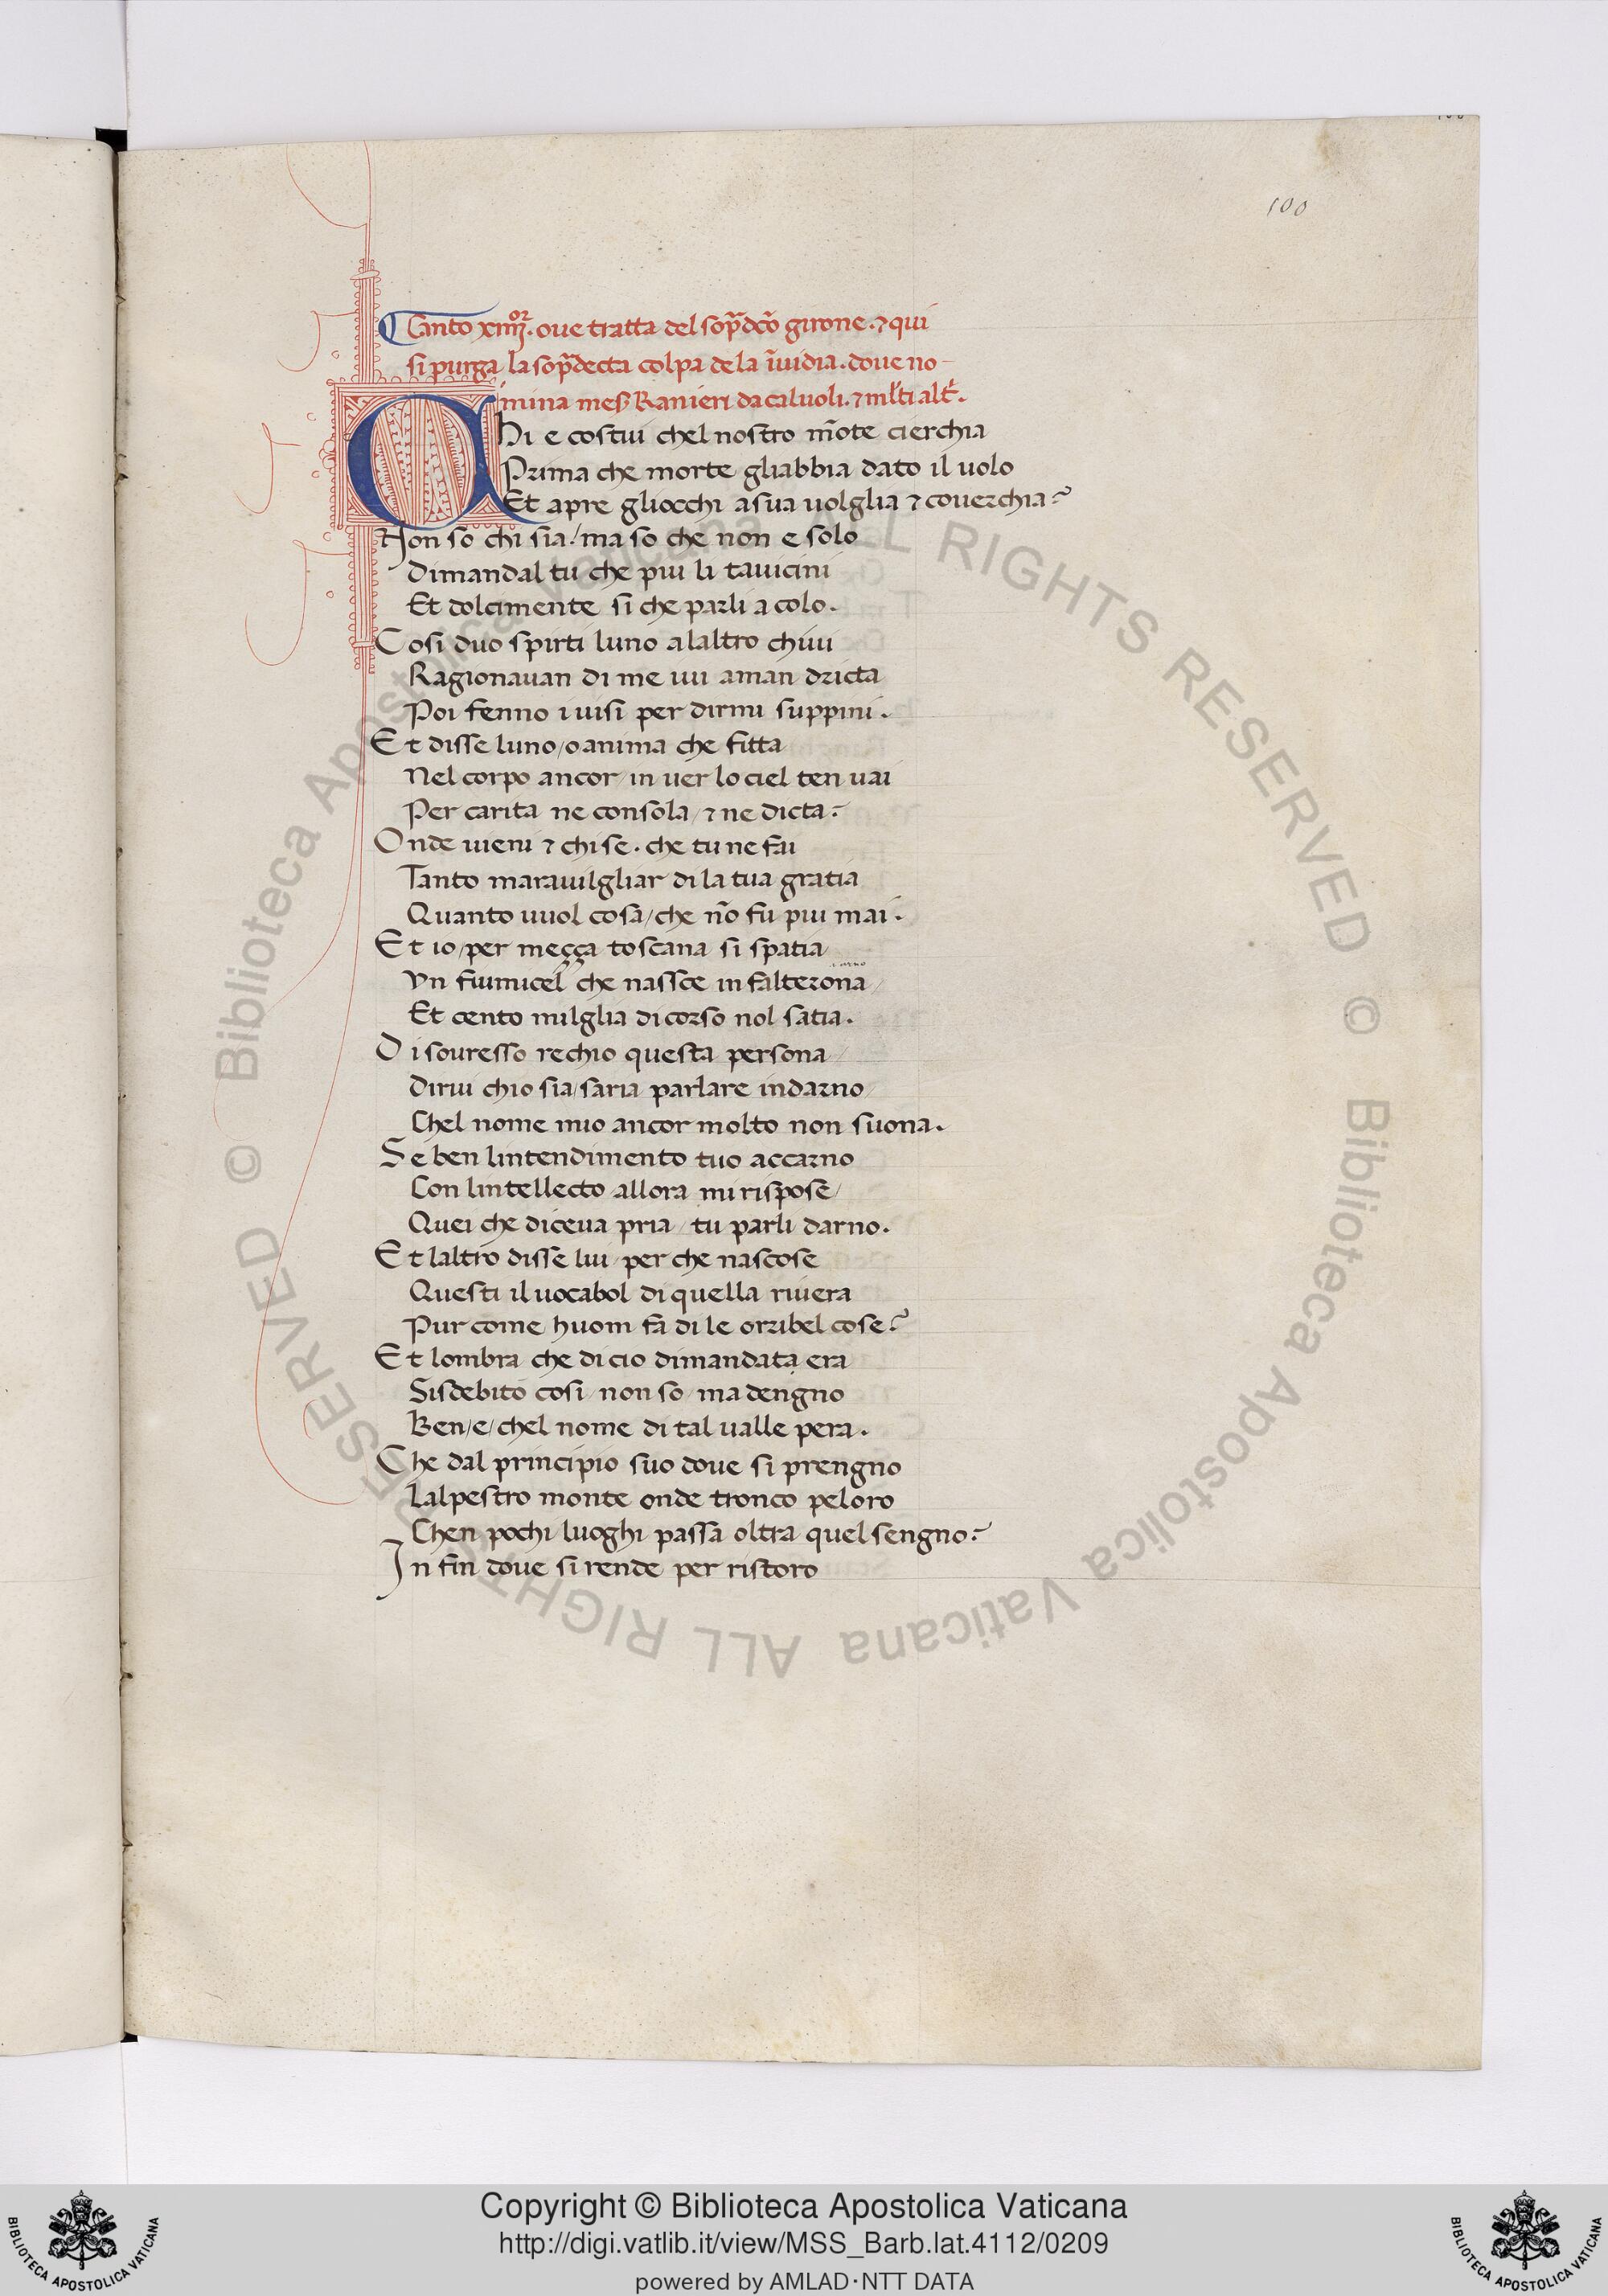 100
Canto xiiij͛. oue tratta del sop̃dc̃o girone. ⁊ qui
si purga la sop̃decta colpa de la ĩuidia. doue no-
mina mes̃ Ranieri da caluoli. ⁊ ml̃ti alt̃.
CHi e costui chel nostro mõte cierchia
Prima che morte gliabbia dato il uolo
Et apre gliocchi a sua uolglia ⁊ couerchia?
Non so chi sia / ma so che non e solo
Dimandal tu che piu li tauicini
Et dolcimente si che parli a colo.
Cosi duo spirti luno alaltro chini
Ragionauan di me iui aman dricta
Poi fenno i uisi per dirmi suppini.
Et disse luno / o anima che fitta
Nel corpo ancor / in uer lo ciel ten uai
Per carita ne consola / ⁊ ne dicta?
Onde uieni ⁊ chi se. che tu ne fai
Tanto marauilgliar di la tua gratia
Quanto uuol cosa / che nõ fu piu mai.
Et io / per meçça toscana si spatia
Vn fiumicel che nassce in falterona /
Et cento milglia di corso nol satia.
Di souresso rechio questa persona /
Dirui chio sia / saria parlare indarno /
Chel nome mio ancor molto non suona.
Se ben lintendimento tuo accarno
Con lintellecto allora mi rispose /
Quei che diceua pria / tu parli darno.
Et laltro disse lui / per che nascose
Questi il uocabol di quella riuera
Pur come huom fa di le orribel cose?
Et lombra che di cio dimandata era
Sisdebito cosi / non so / ma dengno
Ben / e / chel nome di tal ualle pera.
Che dal principio suo doue si prengno
Lalpestro monte onde tronco peloro
Chen pochi luoghi passa oltra quel sengno?
In fin doue si rende per ristoro
© Biblioteca Apostolica Vaticana ALL RIGHTS RESERVED © Biblioteca Apostolica Vaticana ALL RIGHTS RESERVED
BIBLIOTECA APOSTOLICA VATICANA
Copyright © Biblioteca Apostolica Vaticana
http://digi.vatlib.it/view/MSS_Barb.lat.4112/0209
powered by AMLAD·NTT DATA
BIBLIOTECA APOSTOLICA VATICANA